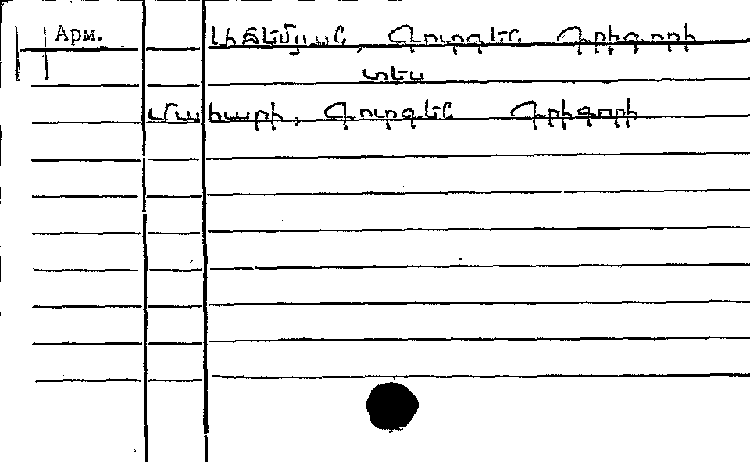 Арм.
Աճեմյան, Գուրգեն Գրիգորի
տես
Մահարի, Գուրգեն Գրիգորի